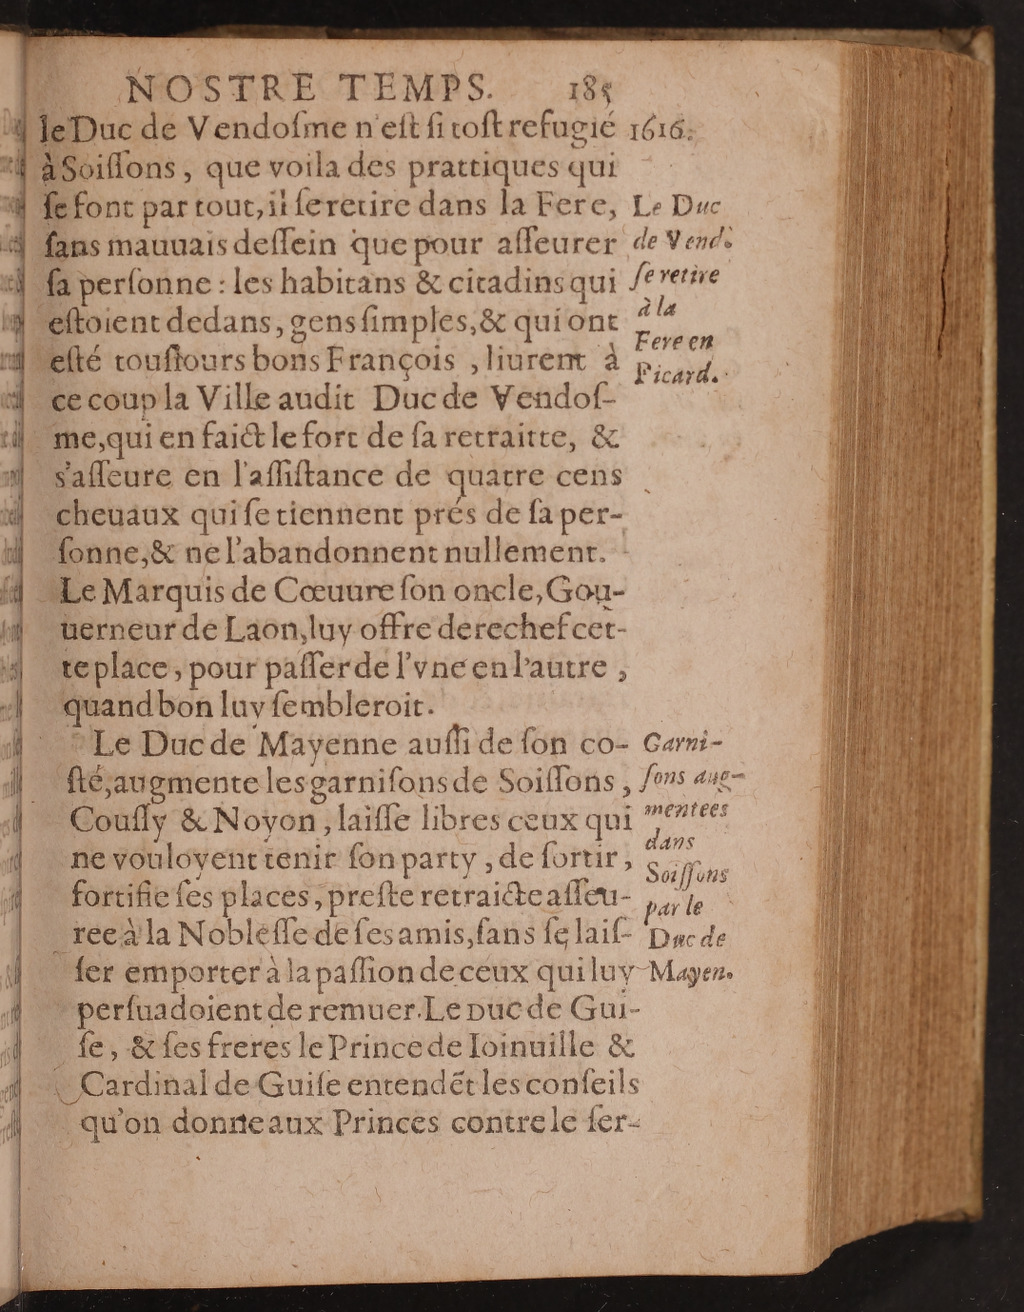 NOSTRE TEMPS. 185
le Duc de Vendoſme n'eſt ſi toſt refugié 1616.
à Soiſſons, que voila des prattiques qui
ſe font par tout, il ſe retire dans la Fere, Le Duc
ſans mauuais deſſein que pour aſſeurer de Vend.
ſa perſonne : les habitans & citadins qui ſe retire
eſtoient dedans, gens ſimples, & qui ont à la
eſté touſiours bons François, liurent à Fere en
Picard.
ce coup la Ville audit Duc de Vendoſ-
me, qui en faict le fort de ſa retraitte, &
s'aſſeure en l'aſſiſtance de quatre cens
cheuaux qui ſe tiennent prés de ſa per-
ſonne, & ne l'abandonnent nullement.
Le Marquis de Cœuure ſon oncle, Gou-
uerneur de Laon, luy offre derechef cet-
te place, pour paſſer de l'vne en l'autre,
quand bon luy ſembleroit.
Le Duc de Mayenne auſſi de ſon co- Garni-
ſté, augmente les garniſons de Soiſſons, ſons aug-
Couſſy & Noyon, laiſſe libres ceux qui mentees
ne vouloyent tenir ſon party, de ſortir, dans
fortifie ſes places, preſte retraicte aſſeu- Soiſſons
par le
ree à la Nobleſſe de ſes amis, ſans ſe laiſ- Duc de
ſer emporter à la paſſion de ceux qui luy Mayen.
perſuadoient de remuer. Le Duc de Gui-
ſe, & ſes freres le Prince de Ioinuille &
Cardinal de Guiſe entendẽt les conſeils
qu'on donne aux Princes contre le ſer-